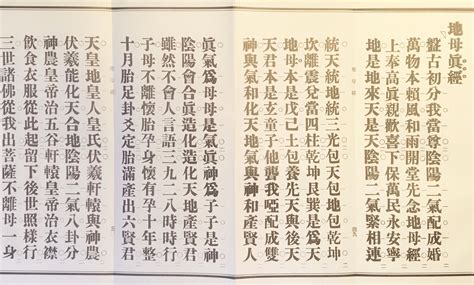 地母眞經
盤古初分我當尊陰陽二氣配成婚
萬物本賴風和雨開堂先念地母經
上奉高眞親歡喜下保萬民永安寧
地是地來天是天陰陽二氣緊相連
統天統地統三光包天包地包
坎離震兌當四柱乾坤艮巽是爲天
地母本是戊己土包養先天與後天
天君本是玄童子他聾我啞配成雙
神與氣和化天地氣與神和產賢人
眞氣爲母母是氣眞神爲子子是神
陰陽會合眞造化造化天地產賢君
雖然不會人言語三九二八時時行
子母不離懷胎孕身懷有孕十年整
十月胎足卦爻定胎滿產出六賢君
天皇地皇人皇氏伏羲軒轅與神農
伏羲能化天合地陰陽二氣八卦分
神農皇帝治五谷軒轅皇帝治衣襟
飲食衣服從此起留下後世照樣行
三世諸佛從我出菩薩不離母一身